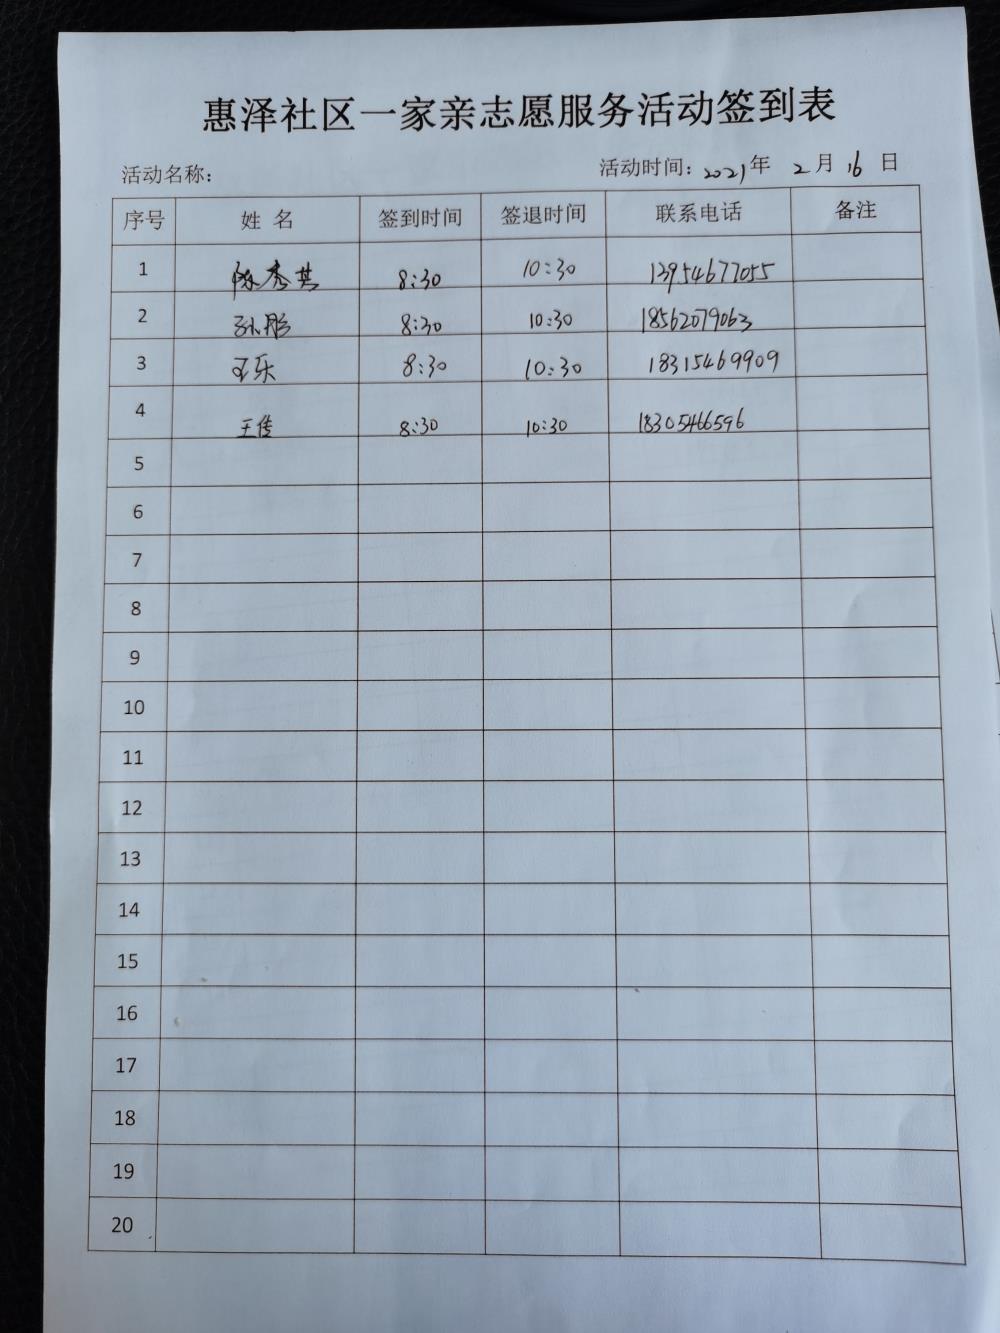 惠泽社区一家亲志愿服务活动签到表
活动名称： 活动时间：2021年 2月 16日
序号 姓 名 签到时间 签退时间 联系电话 备注
1 陈秀其 8:30 10:30 13954677055
2 孙彤 8:30 10:30 18562079063
3 王乐 8:30 10:30 18315469909
4 王倩 8:30 10:30 18305466596
5
6
7
8
9
10
11
12
13
14
15
16
17
18
19
20